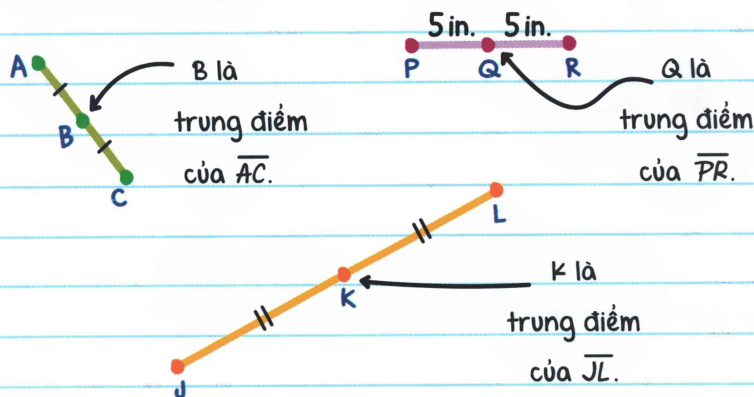 A
B
C
B là
trung điểm
của AC.
5 in. 5 in.
P Q R
Q là
trung điểm
của PR.
L
K
J
K là
trung điểm
của JL.